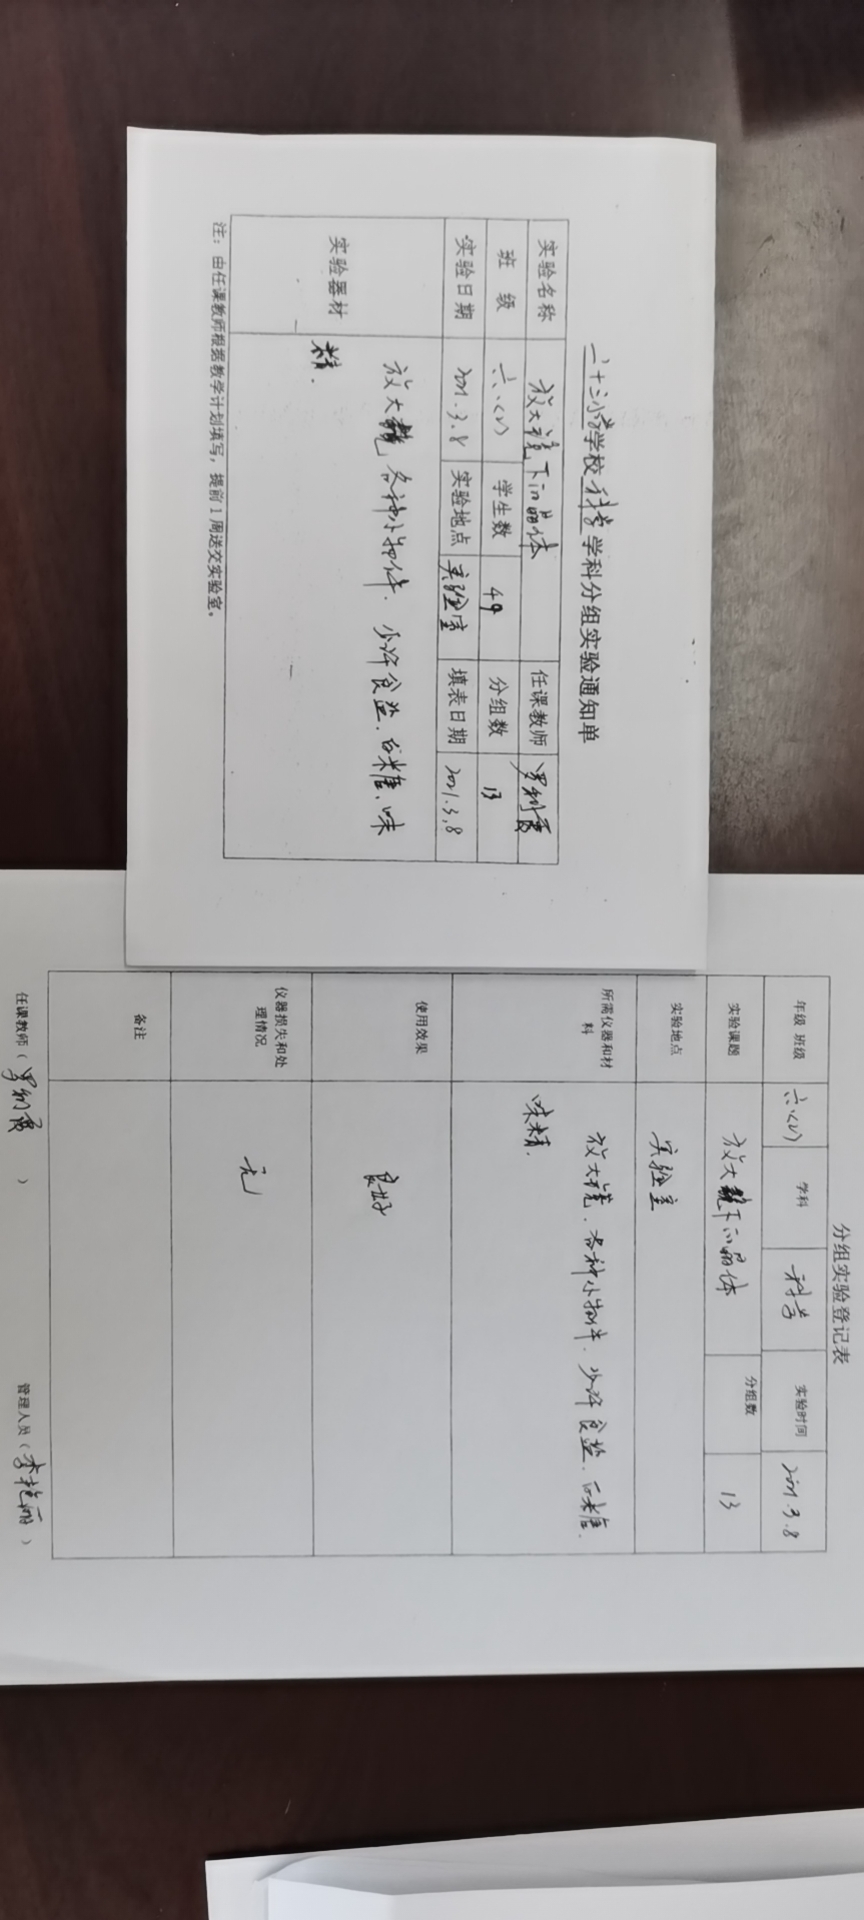 二十三小学学校 科学 学科分组实验通知单
实验名称 放大镜下的晶体 任课教师
班 级 六、(2) 学生数 49 分组数 13
实验日期 2021.3.8 实验地点 实验室 填表日期 2021.3.8
实验器材 放大镜、各种小物件、少许食盐、白米唯、味
精.
注：由任课教师根据教学计划填写，提前1周送交实验室。
分组实验登记表
年级 班级 六、(2) 学科 科学 实验时间 2021.3.8
实验课题 放大镜下的晶体 分组数 13
实验地点 实验室
所需仪器和材料 放大镜、各种小物件、少许食盐、白米唯、
味精.
使用效果 良好
仪器损失和处理情况 无
备注
任课教师（ ） 管理人员（李艳丽）